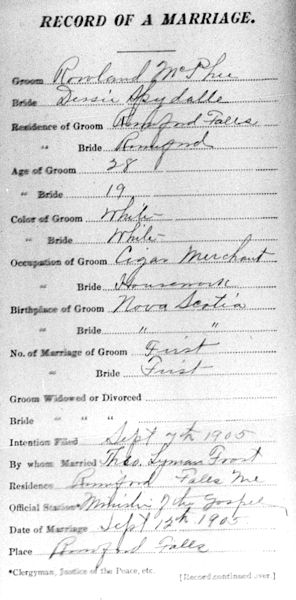 RECORD OF A MARRIAGE.
Groom Rowland McPhee
Bride Dessie Spydalle
Residence of Groom Rumford Falls
" Bride Rumford
Age of Groom 28
" Bride 19
Color of Groom White
" Bride White
Occupation of Groom Cigar Merchant
" Bride Housework
Birthplace of Groom Nova Scotia
" Bride " "
No. of Marriage of Groom First
" Bride First
Groom Widowed or Divorced
Bride " " "
Intention Filed Sept 7th 1905
By whom Married Theo. Lyman Frost
Residence Rumford Falls Me
Official Station* Minister of the Gospel
Date of Marriage Sept 15th 1905
Place Rumford Falls
*Clergyman, Justice of the Peace, etc.
[Record continued over.]